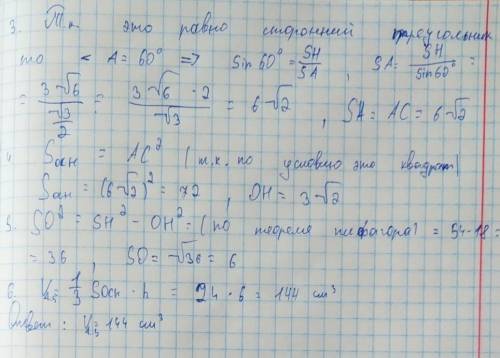 3. Т.к. это равно сторонний треугольник
то < A = 60° => sin 60° = SH/SA , SA = SH/sin60° =
= 3√6/(√3/2) = 3√6 · 2/√3 = 6√2 , SA = AC = 6√2
4 Sосн = AC² (т.к. по условию это квадрат)
Sосн = (6√2)² = 72 , OH = 3√2
5. SO² = SH² - OH² = (по теореме пифагора) = 54-18 =
= 36 , SO = √36 = 6
6. V = 1/3 Sосн · h = 24 · 6 = 144 см³
Ответ : V = 144 см³